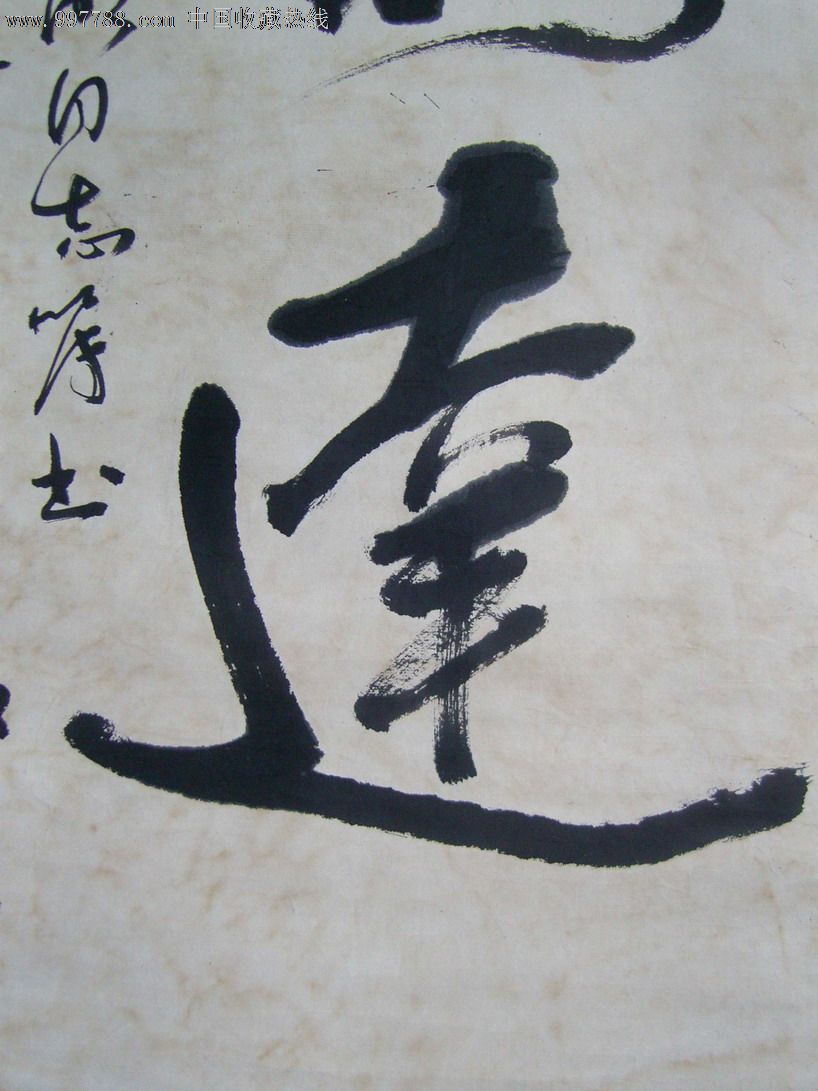 www.997788.com 中国收藏热线
達
同志嘱书